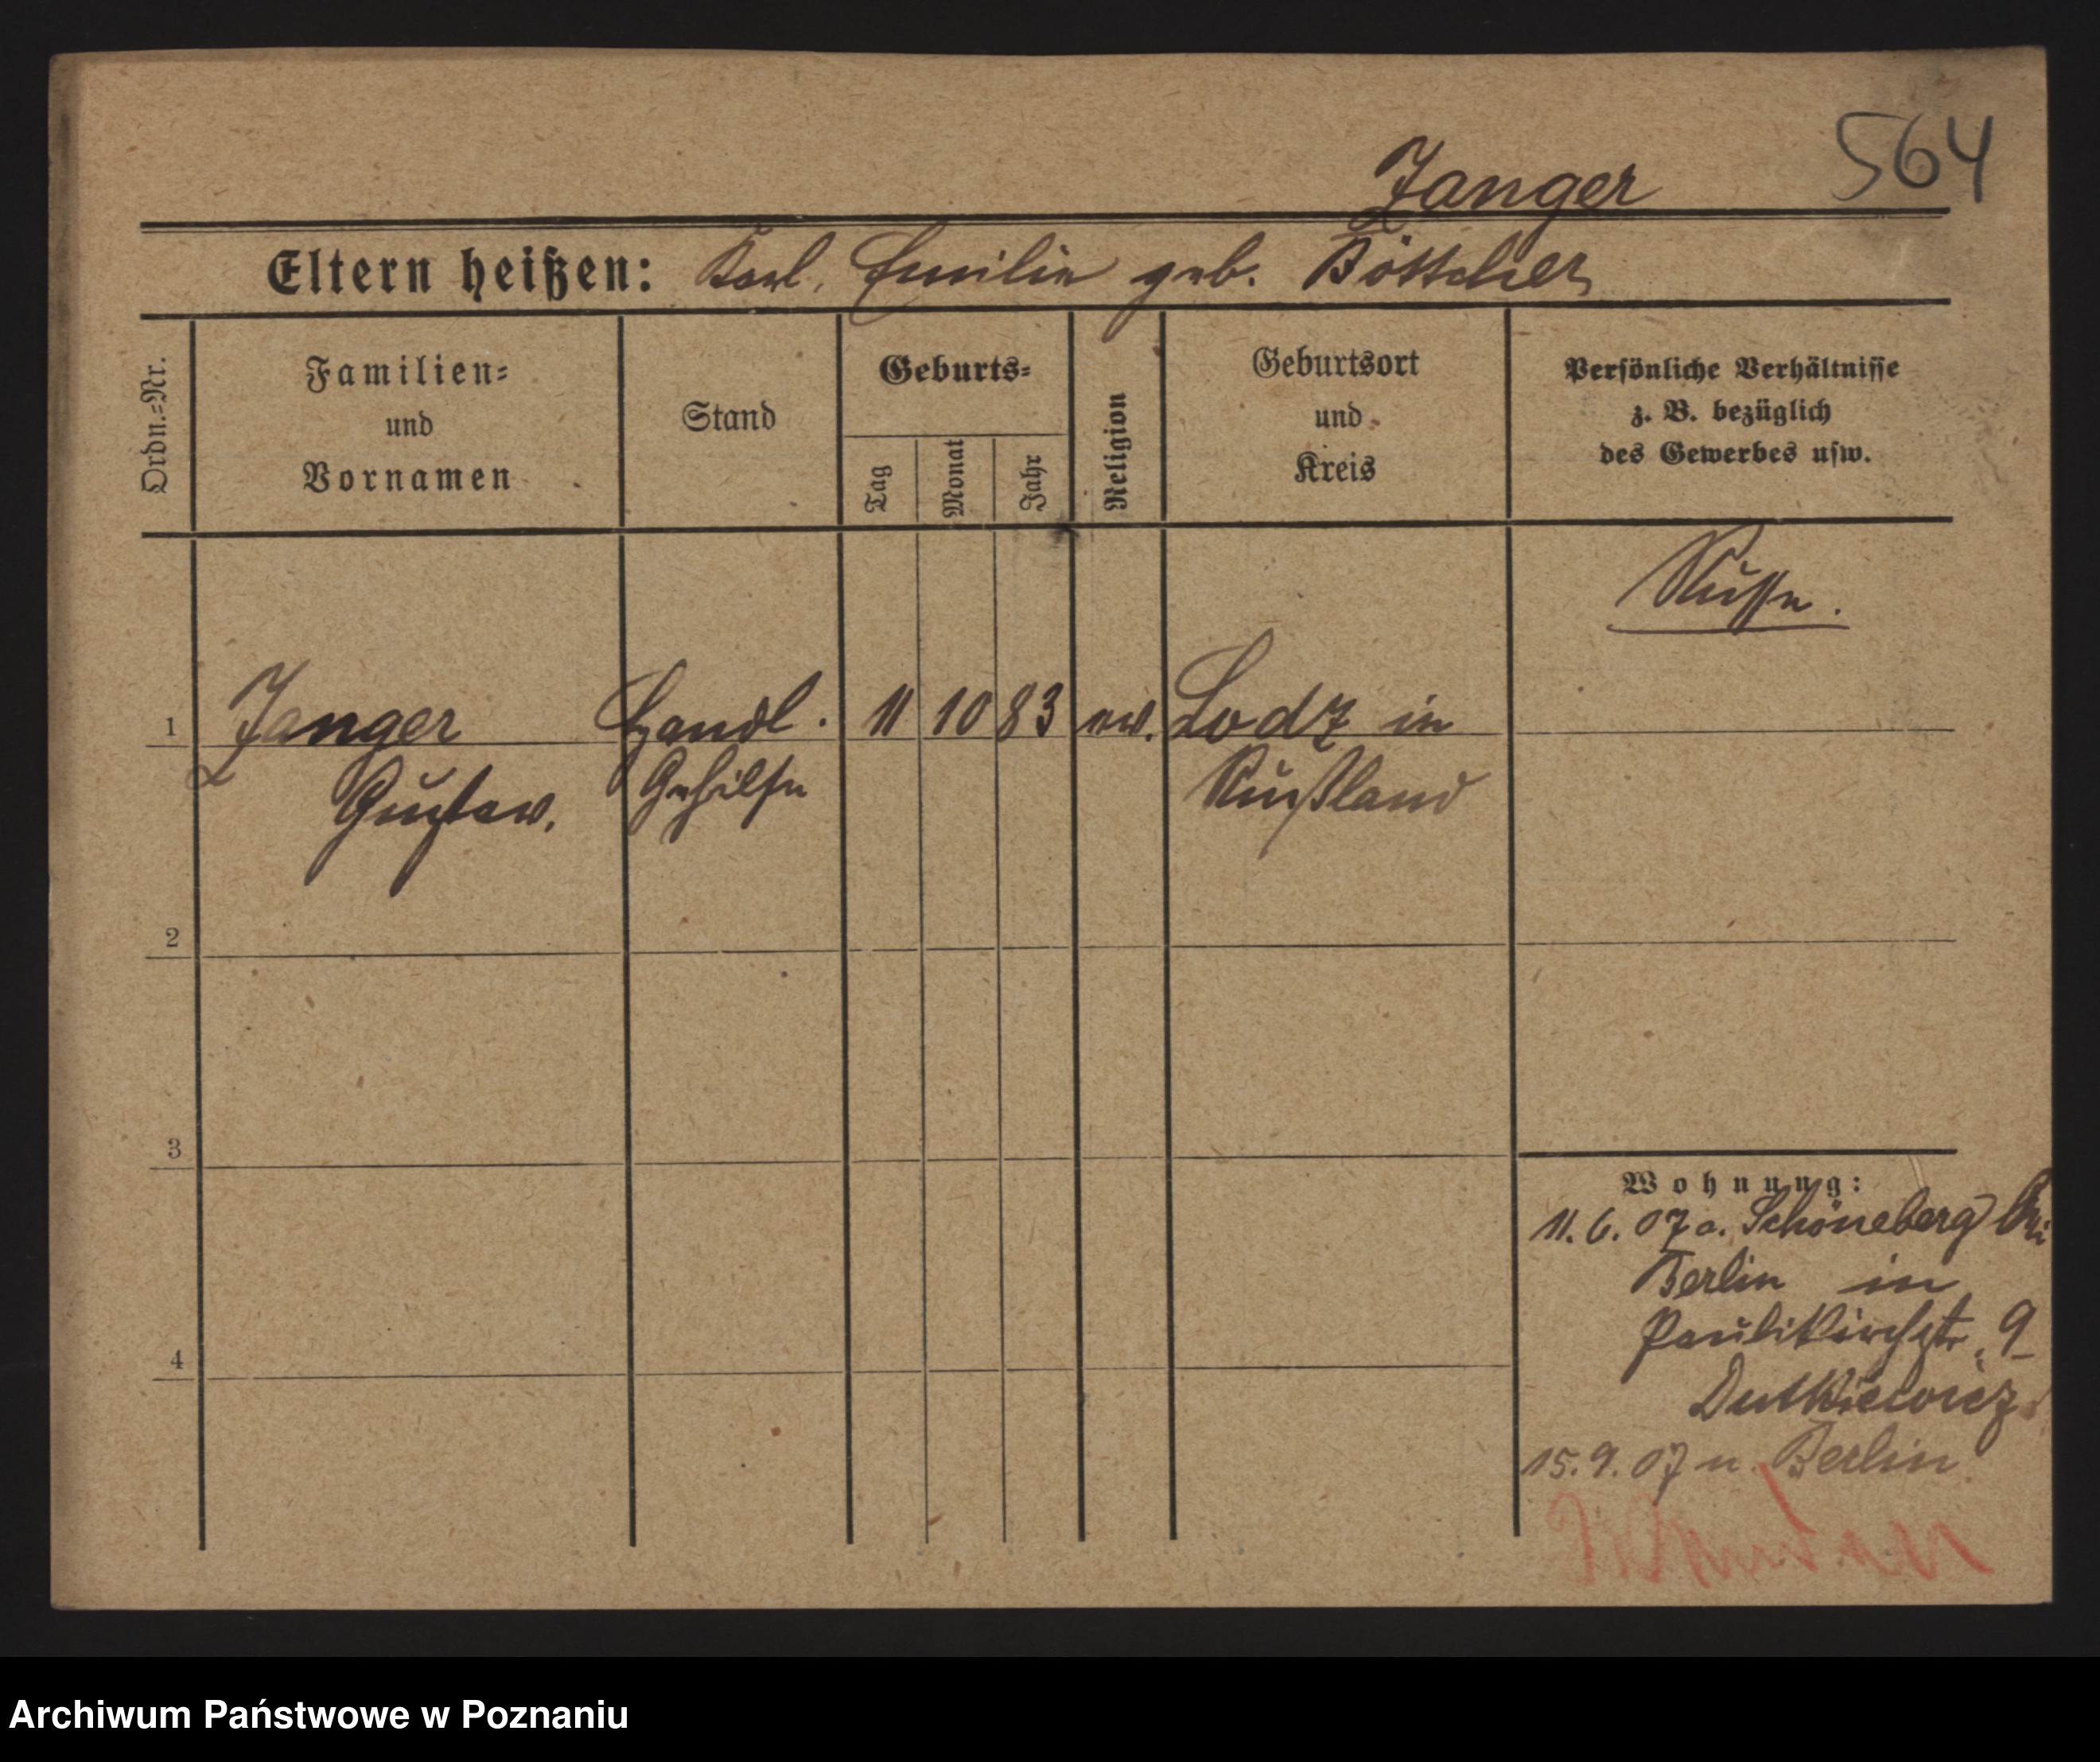 564
Janger
Eltern heißen: Karl, Emilie geb. Böttcher
Ordn.=Nr.
Familien=
und
Vornamen
Stand
Geburts=
Tag
Monat
Jahr
Religion
Geburtsort
und
Kreis
Persönliche Verhältnisse
z. B. bezüglich
des Gewerbes usw.
Russe.
1 Janger Handl. 11 10 83 ev. Lodz in
Gustav. Gehilfe Rußland
2
3
4
Wohnung:
11. 6. 07 a. Schöneberg bei
Berlin in
Paulikirchstr. 9
Dutkiewicz
15. 9. 07 n. Berlin
Archiwum Państwowe w Poznaniu